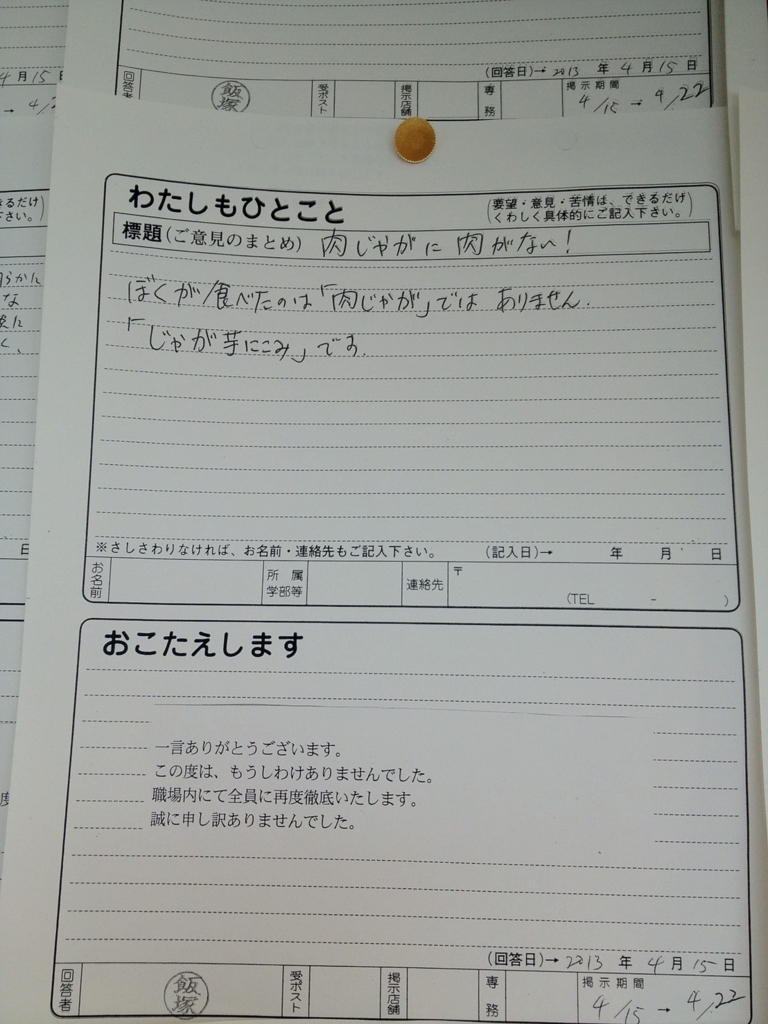 (回答日)→ 2013 年 4月 15日
回答者 飯塚 受ポスト 掲示店舗 専務 掲示期間 4/15 → 4/22
4月15日
→ 4/2
るだけ
さい。)
な
く、
日
度
わたしもひとこと (要望・意見・苦情は、できるだけ
くわしく具体的にご記入下さい。)
標題(ご意見のまとめ) 肉じゃがに肉がない!
ぼくが食べたのは「肉じゃが」ではありません.
「じゃが芋にこみ」です.
※さしさわりなければ、お名前・連絡先もご記入下さい。 (記入日)→ 年 月 日
お名前 所属学部等 連絡先 〒 (TEL - )
おこたえします
一言ありがとうございます。
この度は、もうしわけありませんでした。
職場内にて全員に再度徹底いたします。
誠に申し訳ありませんでした。
(回答日)→ 2013 年 4月 15日
回答者 飯塚 受ポスト 掲示店舗 専務 掲示期間 4/15 → 4/22